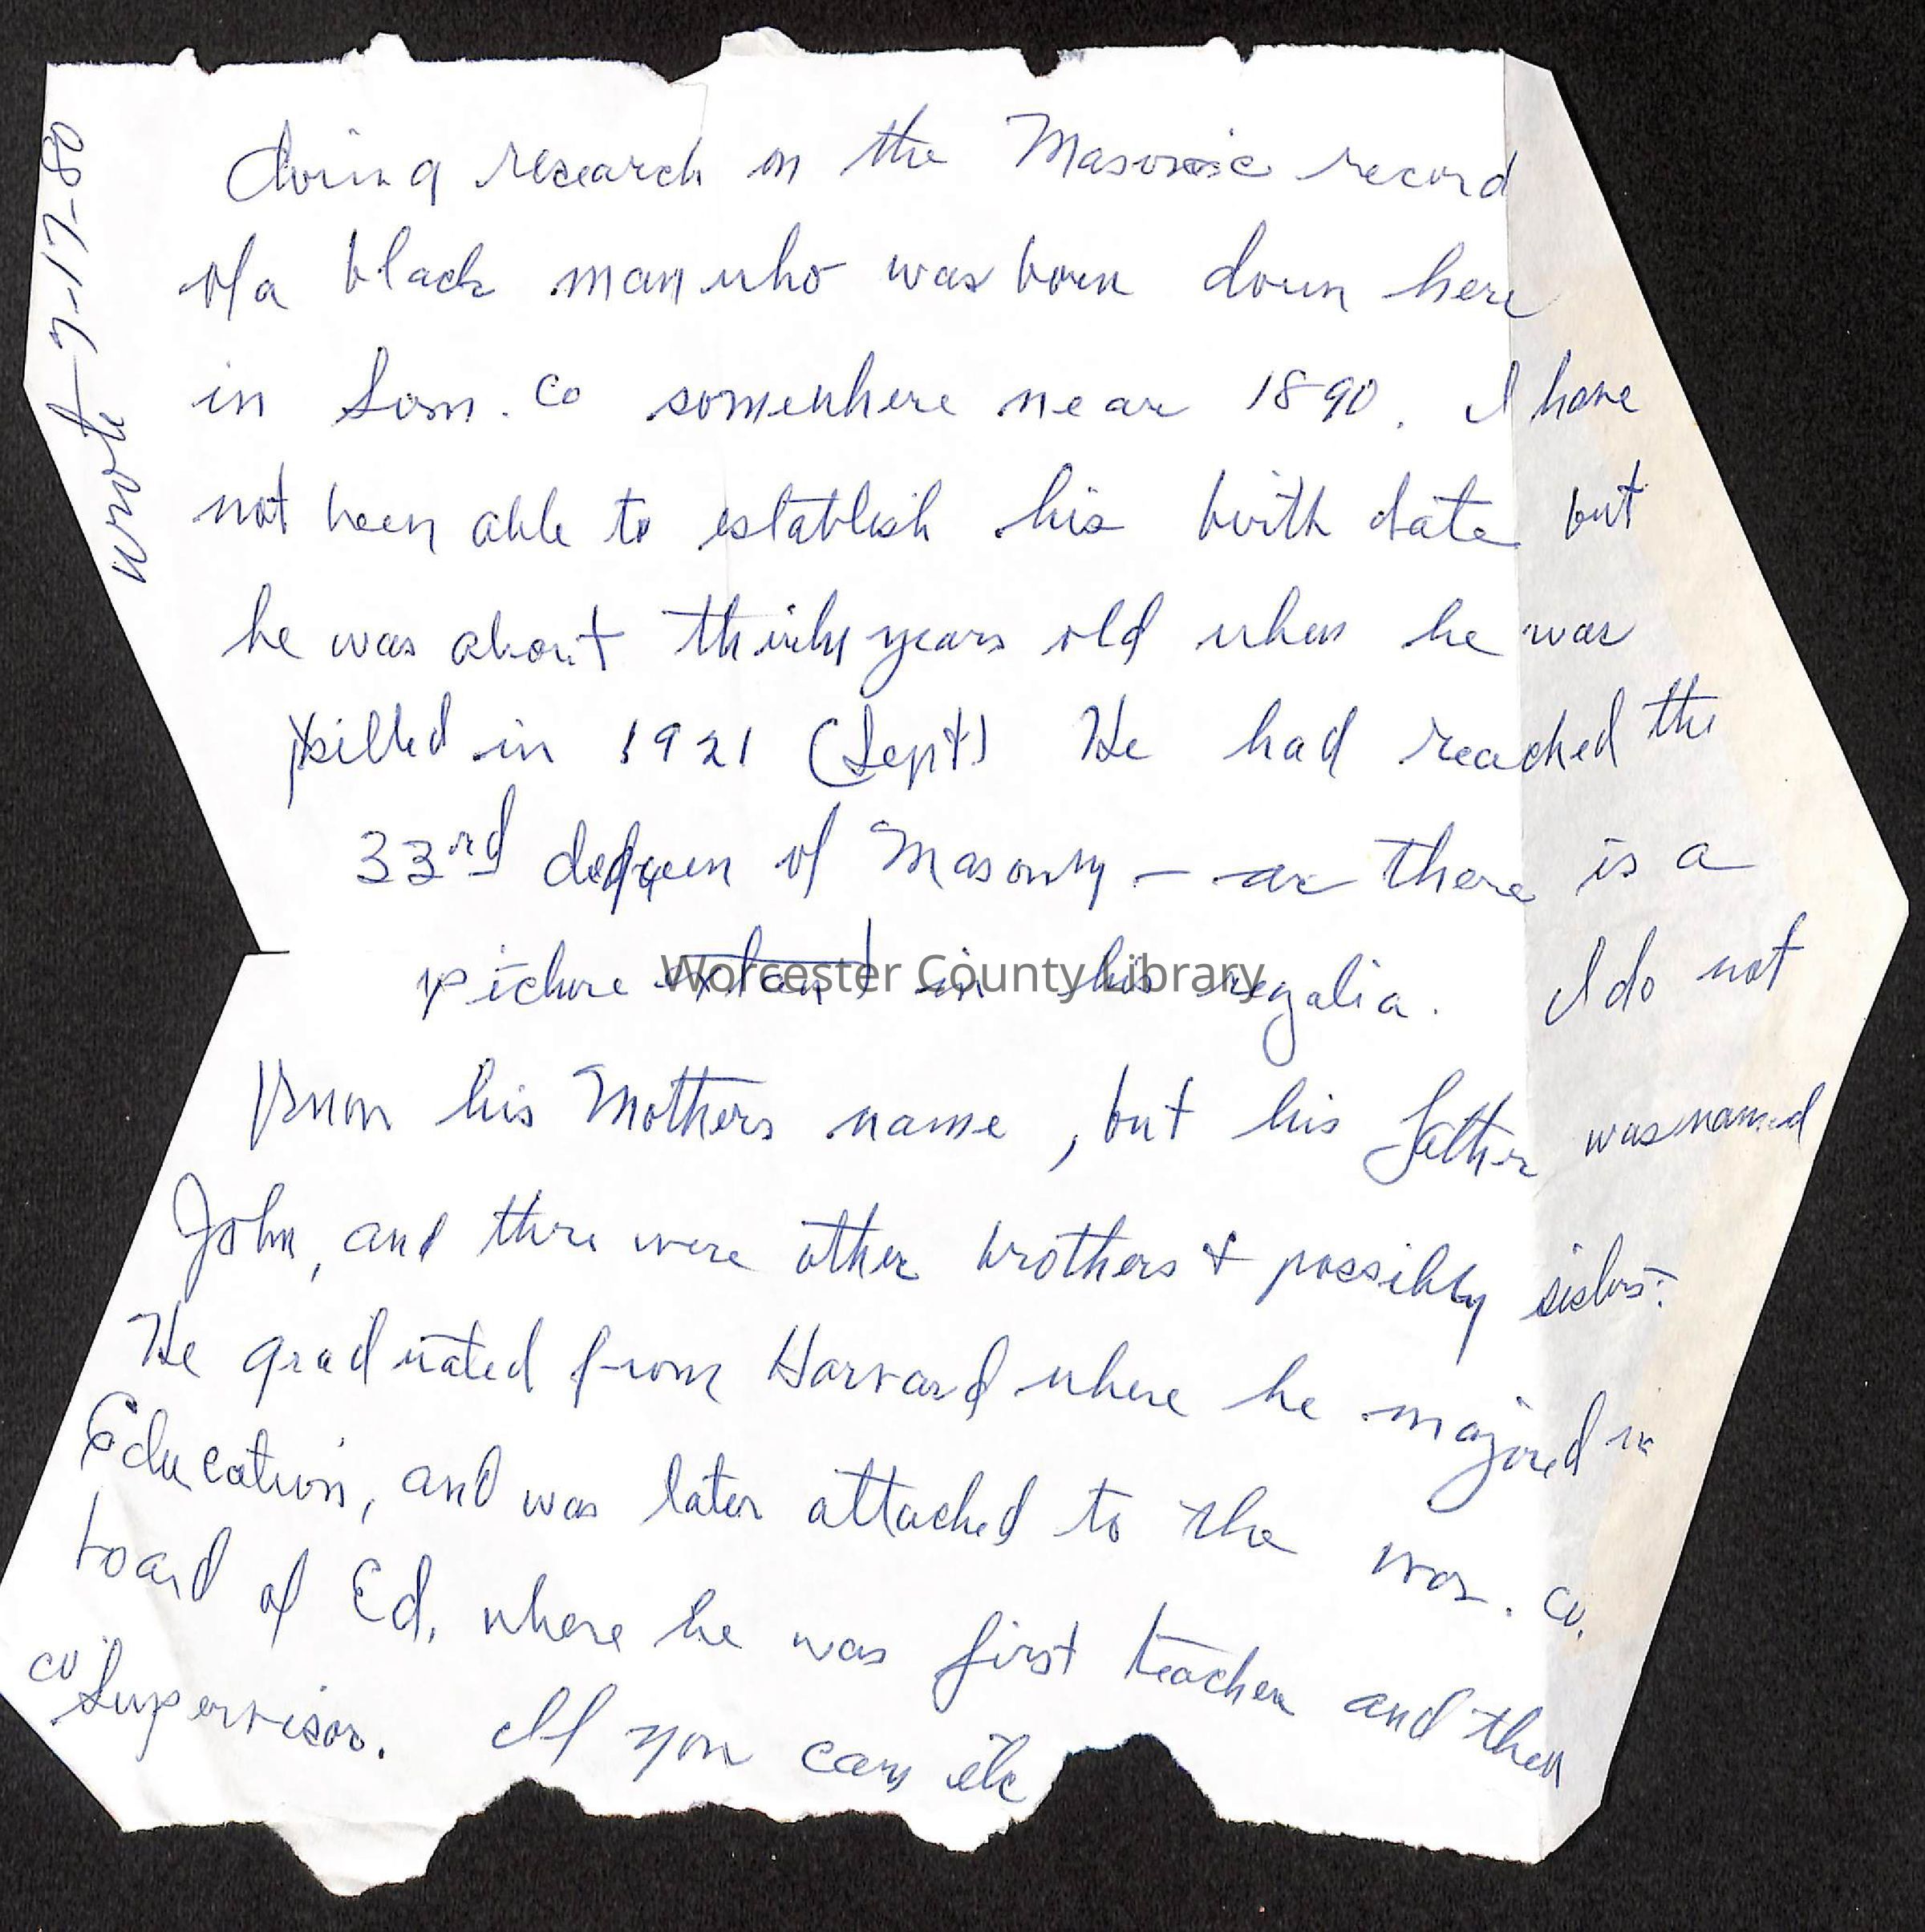 wrote 7-17-80
doing research on the Masonic record
of a black man who was born down here
in Som. Co somewhere near 1890. I have
not been able to establish his birth date but
he was about thirty years old when he was
killed in 1921 (Sept) He had reached the
33rd degree of Masonry - as there is a
picture extant in his regalia. I do not
Worcester County Library
know his Mothers name, but his father was named
John, and there were other brothers & possibly sisters.
He graduated from Harvard where he majored in
Education, and was later attached to the Wor. Co.
board of Ed. where he was first teacher and then
co Supervisor. If you can etc